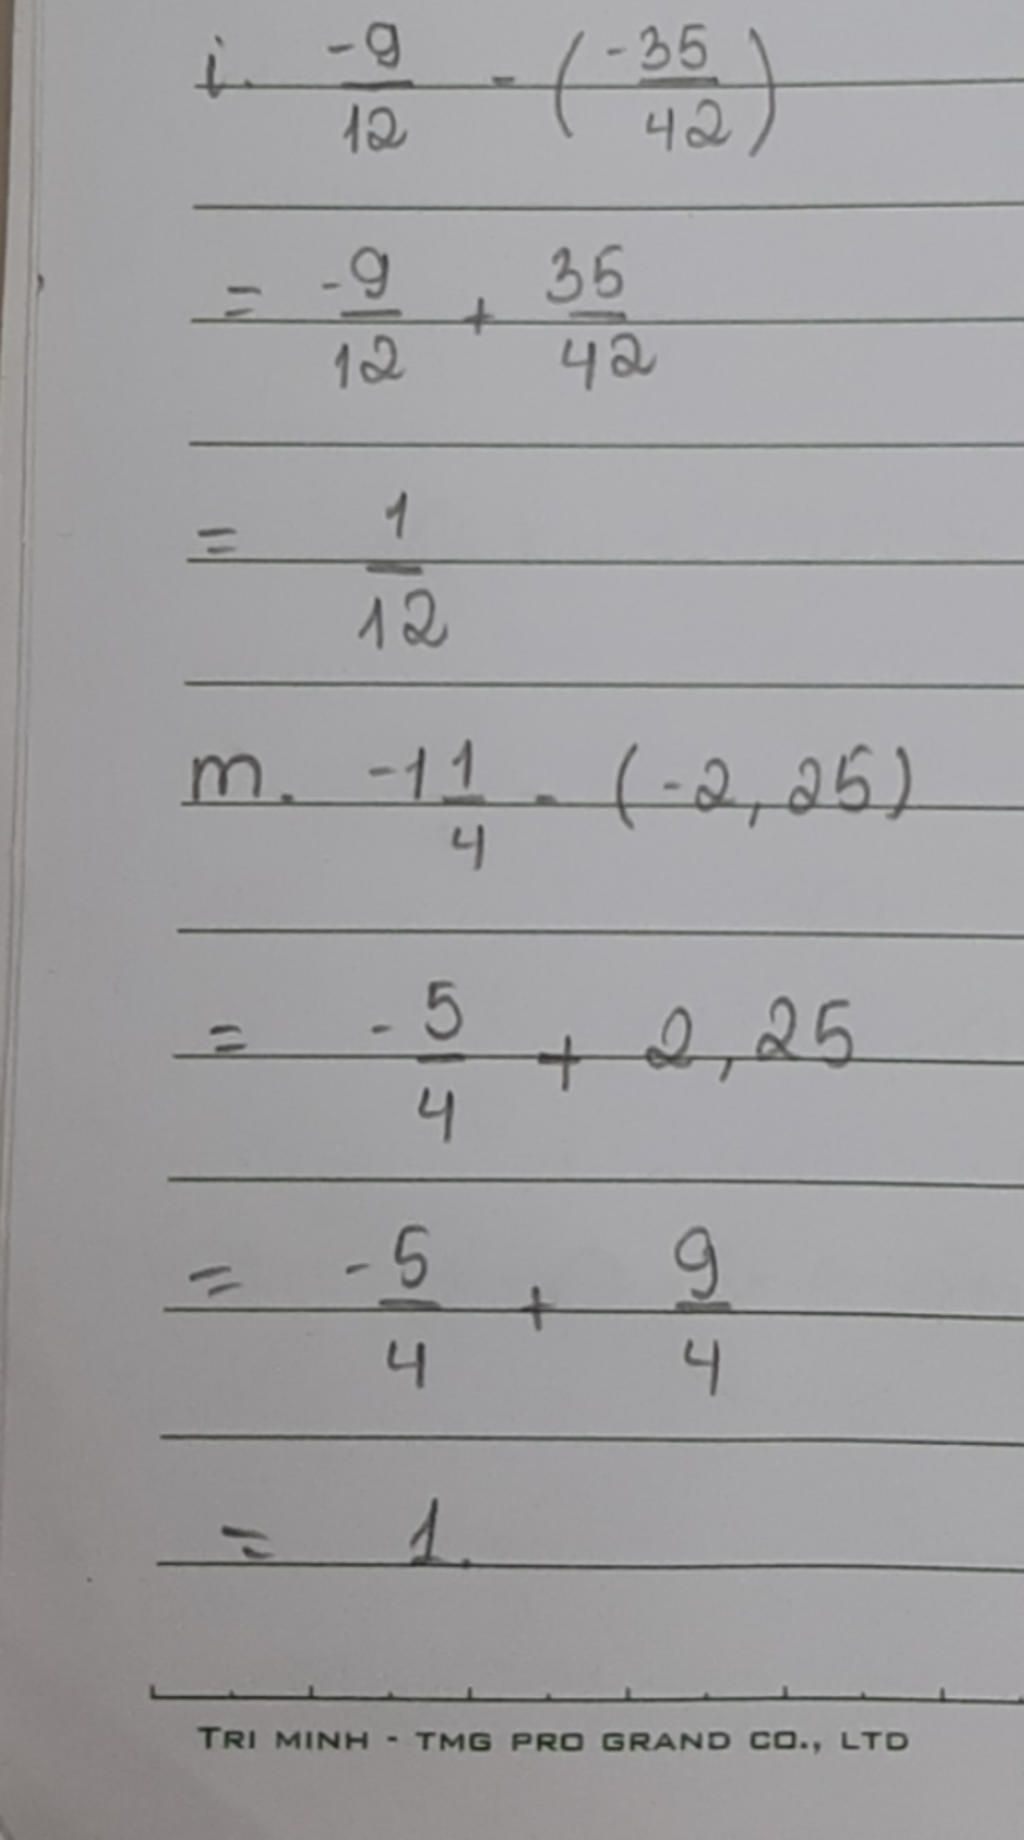 i. -9/12 - (-35/42)
= -9/12 + 35/42
= 1/12
m. -1 1/4 - (-2,25)
= -5/4 + 2,25
= -5/4 + 9/4
= 1.
TRI MINH - TMG PRO GRAND CO., LTD